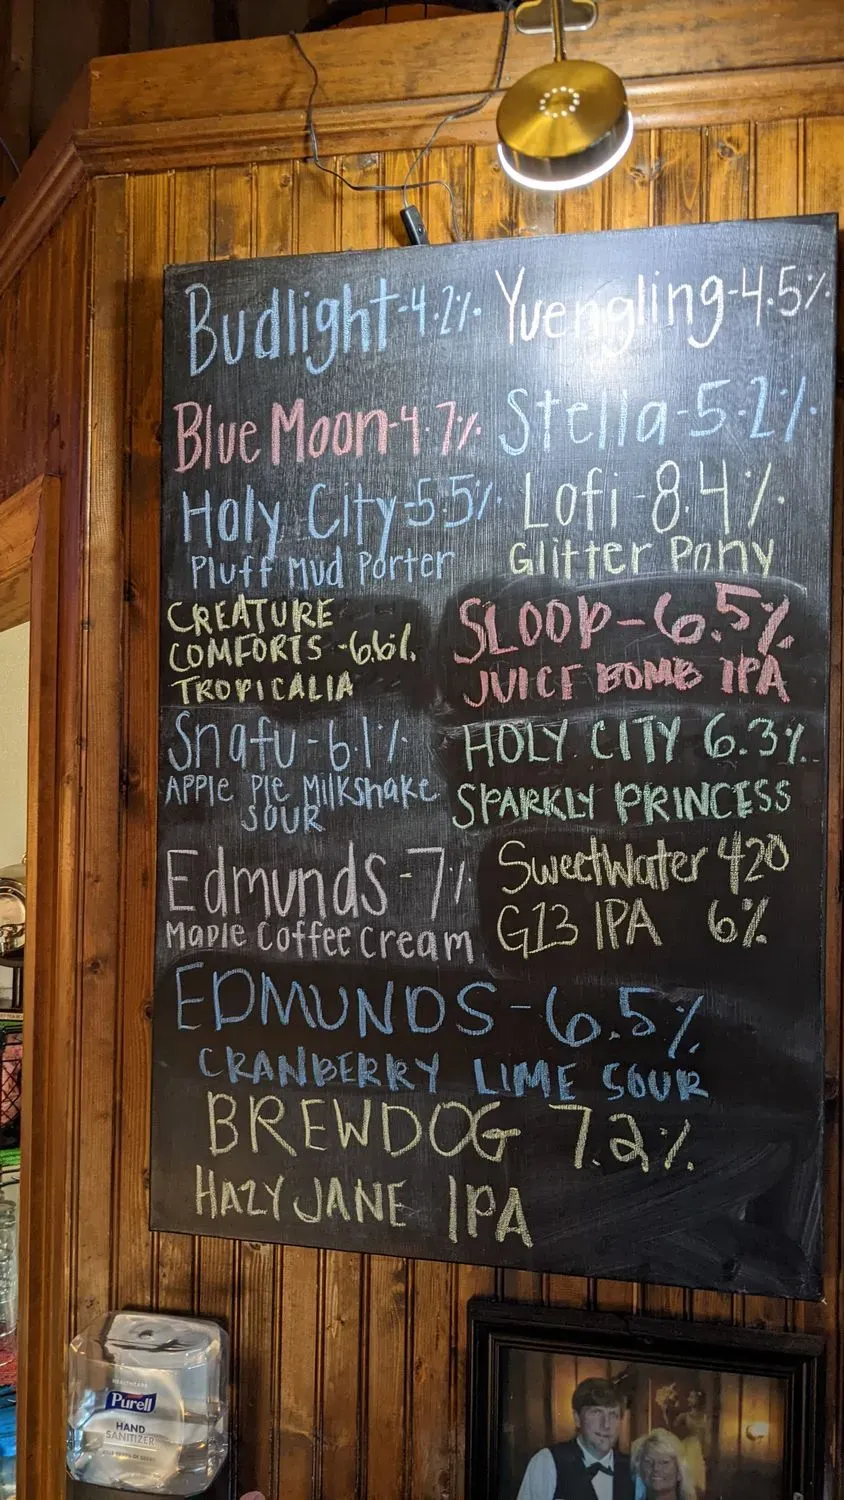 Budlight-4.2%
Yuengling-4.5%
Blue Moon-4.7%
Stella-5.2%
Holy City-5.5%
Pluff Mud Porter
Lofi-8.4%
Glitter Pony
CREATURE
COMFORTS -6.6%
TROPICALIA
SLOOP-6.5%
JUICE BOMB IPA
Snafu-6.1%
APPLE PIE MILKSHAKE
SOUR
HOLY CITY 6.3%
SPARKLY PRINCESS
Edmunds-7%
Maple Coffee Cream
SweetWater 420
G13 IPA 6%
EDMUNDS-6.5%
CRANBERRY LIME SOUR
BREWDOG 7.2%
HAZY JANE IPA
HEALTHCARE
Purell
HAND
SANITIZER